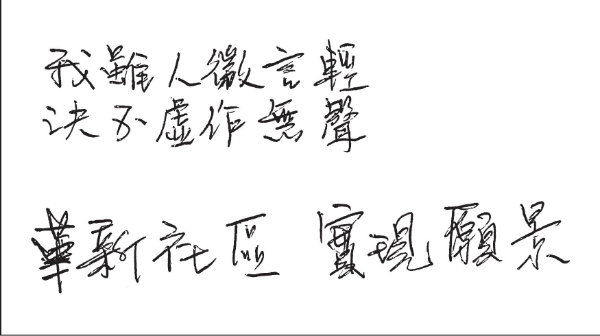 我雖人微言輕
決不虛作無聲
華新社區 實現願景